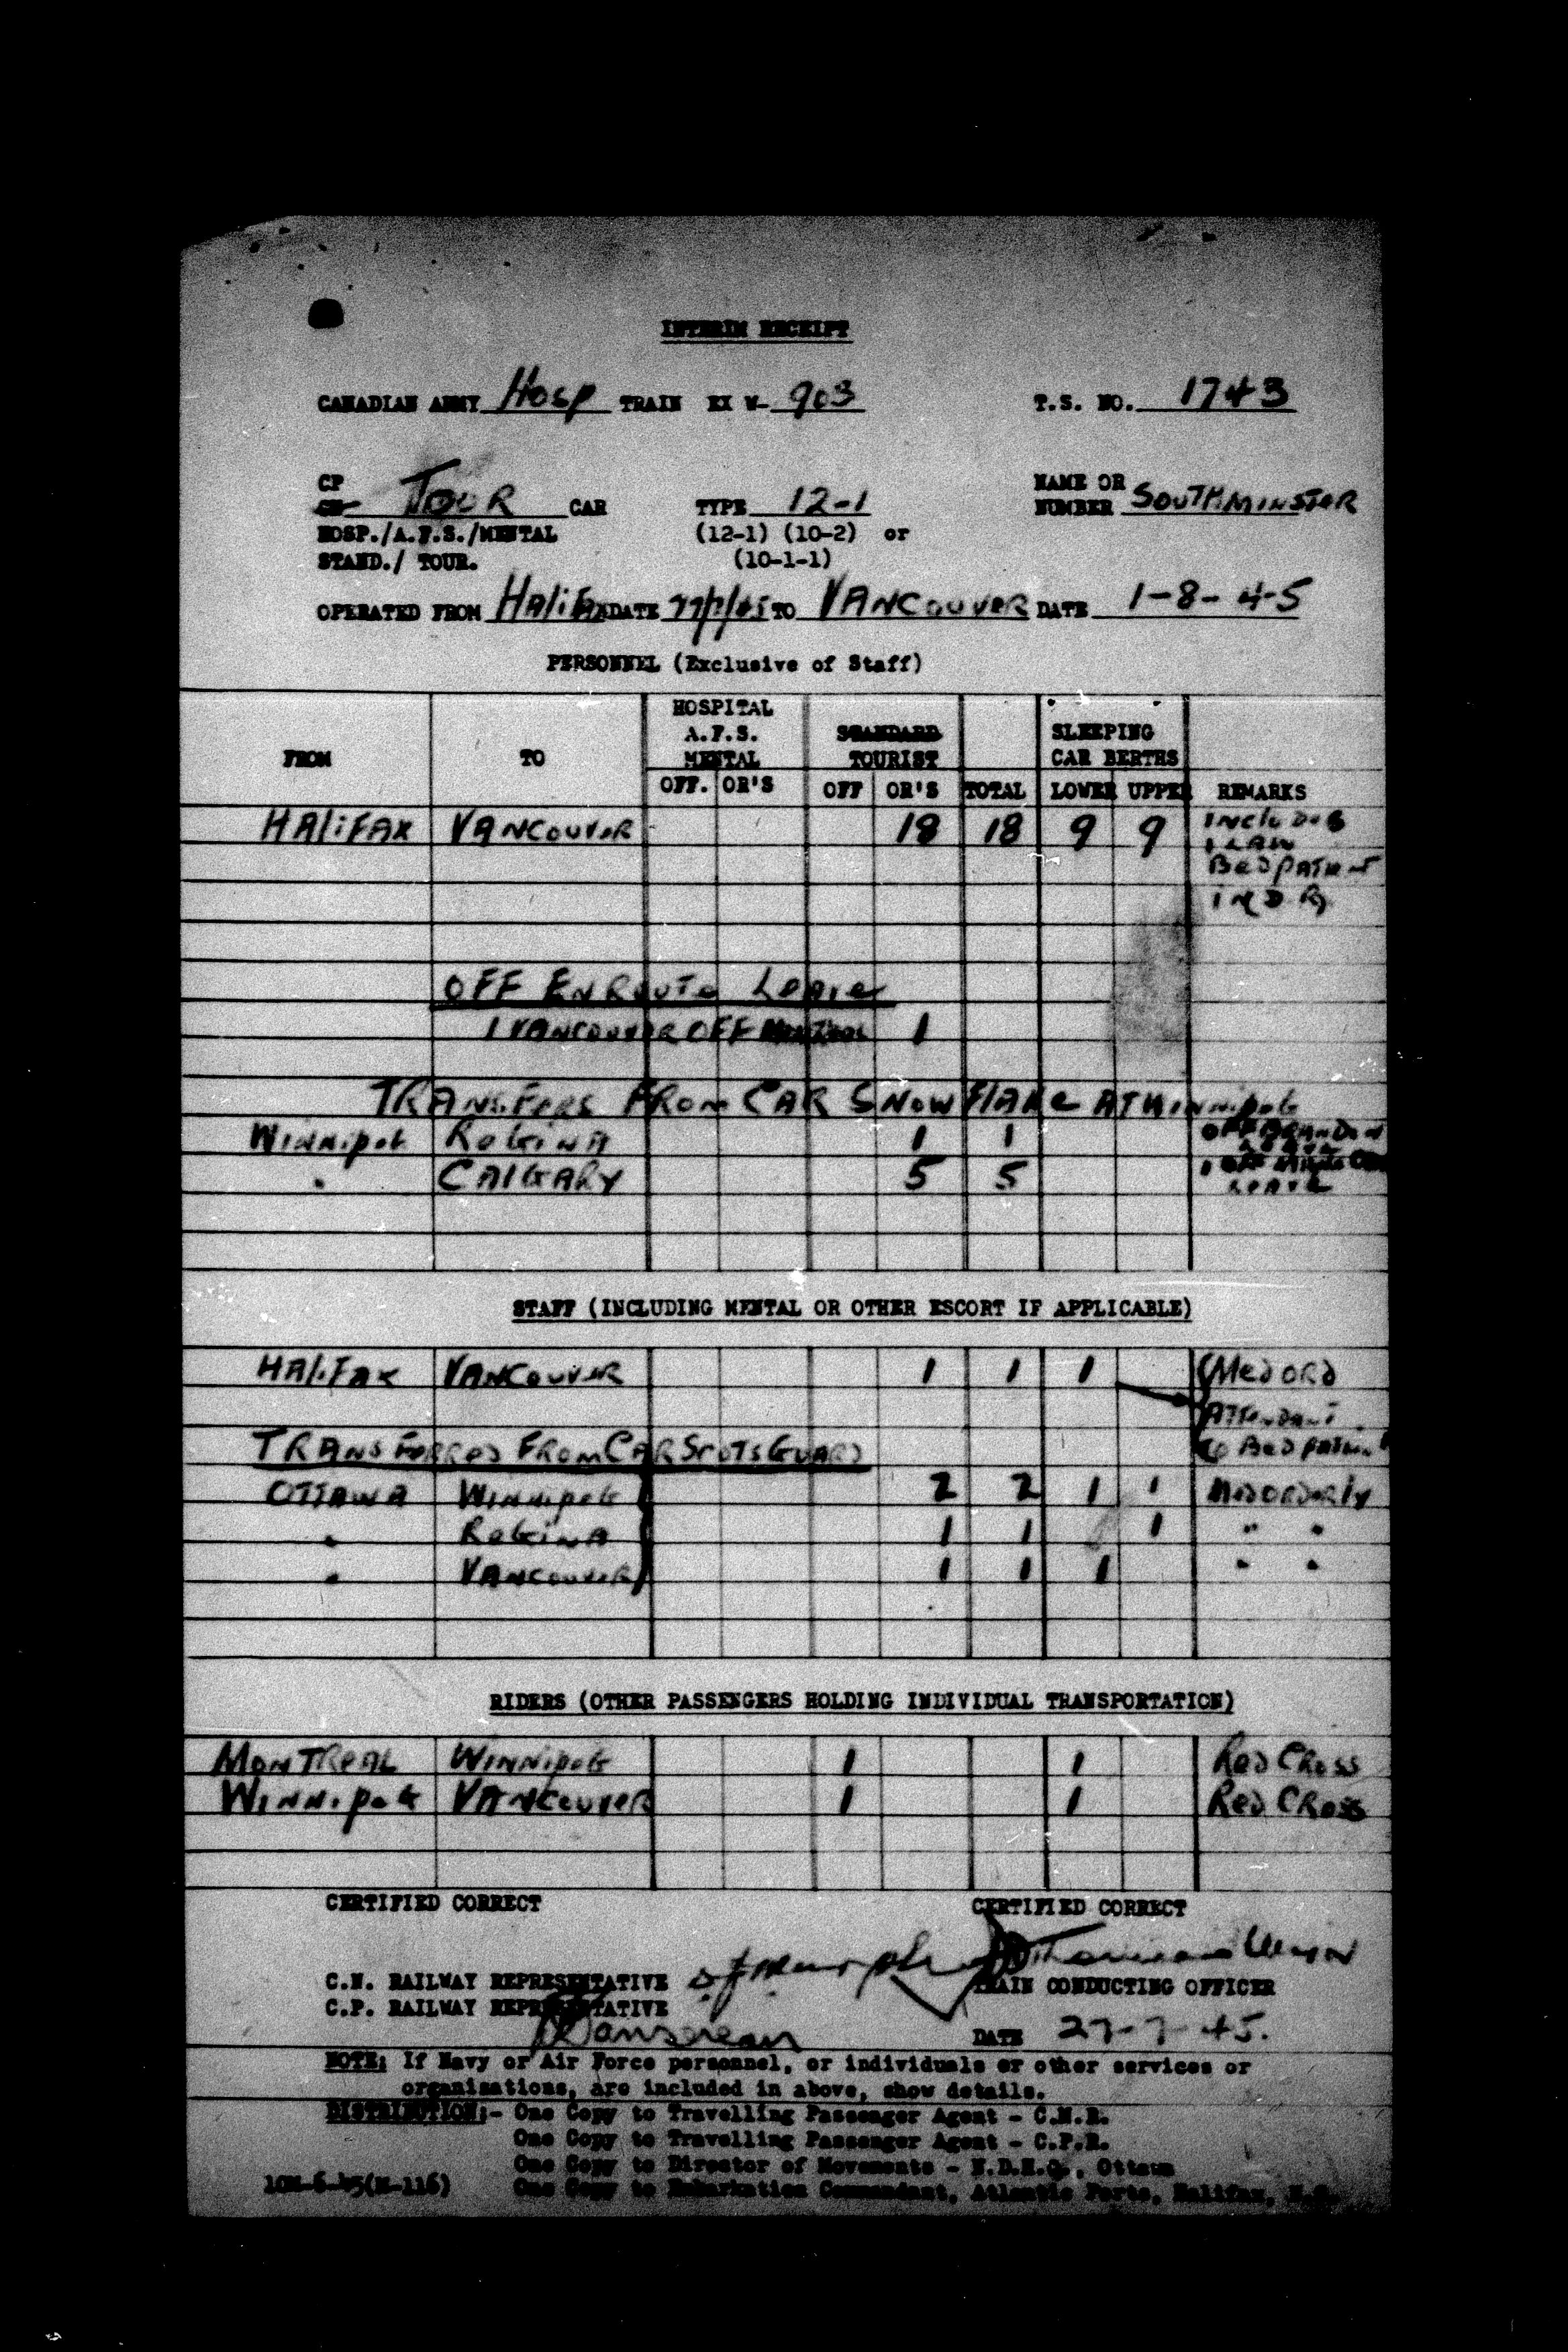 INTERIM RECEIPT
CANADIAN ARMY Hosp TRAIN EX W- 903 T.S. NO. 1743
CP NAME OR
CN TOUR CAR TYPE 12-1 NUMBER SOUTHMINSTER
HOSP./A.F.S./MENTAL (12-1) (10-2) or
STAND./ TOUR. (10-1-1)
OPERATED FROM HALIFAX DATE 27/7/45 TO VANCOUVER DATE 1-8-45
PERSONNEL (Exclusive of Staff)
HOSPITAL
A.F.S. STANDARD SLEEPING
FROM TO MENTAL TOURIST CAR BERTHS
OFF. OR'S OFF OR'S TOTAL LOWER UPPER REMARKS
HALIFAX VANCOUVER 18 18 9 9 INCLUDES
BED PATIENT
IN D.R.
OFF ENROUTE LEAVE
1 VANCOUVER OFF 1
TRANSFERS FROM CAR SNOWFLAKE AT WINNIPEG
WINNIPEG REGINA 1 1 OFF BRANDON
LEAVE
" CALGARY 5 5 1 OFF
LEAVE
STAFF (INCLUDING MENTAL OR OTHER ESCORT IF APPLICABLE)
HALIFAX VANCOUVER 1 1 1 (MED ORD
ATTENDANT
TO BED PATIENT
TRANSFERRED FROM CAR SCOTS GUARD
OTTAWA WINNIPEG 2 2 1 1 MED ORDERLY
" REGINA 1 1 1 " "
" VANCOUVER 1 1 1 " "
RIDERS (OTHER PASSENGERS HOLDING INDIVIDUAL TRANSPORTATION)
MONTREAL WINNIPEG 1 1 RED CROSS
WINNIPEG VANCOUVER 1 1 RED CROSS
CERTIFIED CORRECT CERTIFIED CORRECT
C.N. RAILWAY REPRESENTATIVE TRAIN CONDUCTING OFFICER
C.P. RAILWAY REPRESENTATIVE
DATE 27-7-45.
NOTE: If Navy or Air Force personnel, or individuals or other services or
organizations, are included in above, show details.
DISTRIBUTION:- One Copy to Travelling Passenger Agent - C.N.R.
One Copy to Travelling Passenger Agent - C.P.R.
One Copy to Director of Movements - N.D.H.Q., Ottawa
10M-6-45(M-116) One Copy to Embarkation Commandant, Atlantic Ports, Halifax, N.S.